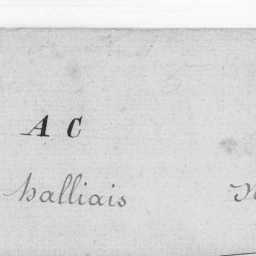 A C
halliais